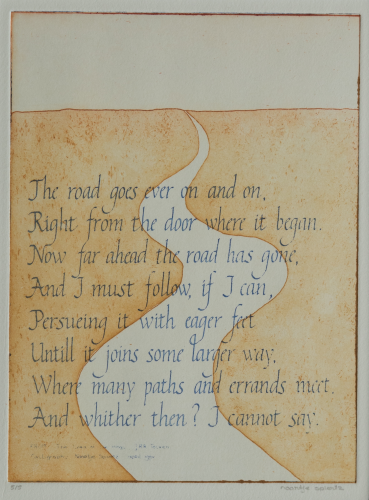 The road goes ever on and on,
Right from the door where it began.
Now far ahead the road has gone,
And I must follow, if I can,
Persueing it with eager feet
Untill it joins some larger way,
Where many paths and errands meet.
And whither then? I cannot say.